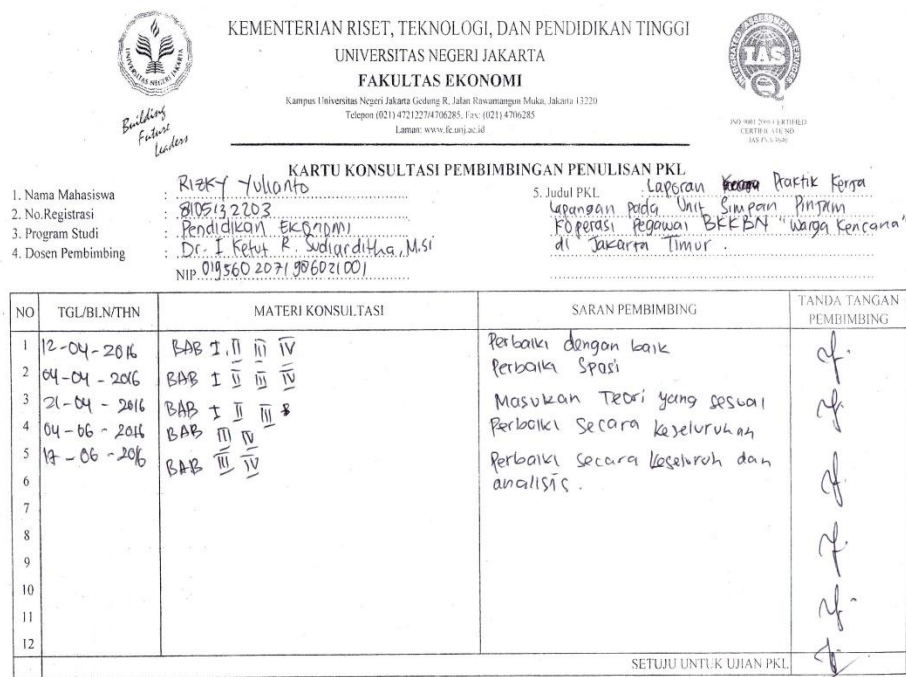 KEMENTERIAN RISET, TEKNOLOGI, DAN PENDIDIKAN TINGGI
UNIVERSITAS NEGERI JAKARTA
FAKULTAS EKONOMI
Kampus Universitas Negeri Jakarta Gedung R, Jalan Rawamangun Muka, Jakarta 13220
Telepon (021) 4721227/4706285, Fax: (021) 4706285
Laman: www.fe.unj.ac.id
UNIVERSITAS NEGERI JAKARTA
Building
Future
Leaders
INTEGRATED ASSESSMENT SERVICES
IAS
Q
ISO 9001:2008 CERTIFIED
CERTIFICATE NO
KARTU KONSULTASI PEMBIMBINGAN PENULISAN PKL
1. Nama Mahasiswa : Rizky Yulianto
2. No.Registrasi : 8105132203
3. Program Studi : Pendidikan Ekonomi
4. Dosen Pembimbing : Dr. I Ketut R. Sudiarditha, M.si
NIP 019560 2071 986021001
5. Judul PKL : Laporan Praktik Kerja
Lapangan Pada Unit Simpan Pinjam
Koperasi Pegawai BKKBN "Warga Kencana"
di Jakarta Timur.
NO TGL/BLN/THN MATERI KONSULTASI SARAN PEMBIMBING TANDA TANGAN PEMBIMBING
1 12-04-2016 BAB I, II III IV Perbaiki dengan baik
2 04-04-2016 BAB I II III IV Perbaiki Spasi
3 21-04-2016 BAB I II III Masukan Teori yang sesuai
4 04-06-2016 BAB III IV Perbaiki Secara keseluruhan
5 17-06-2016 BAB III IV Perbaiki secara keseluruh dan
6 analisis.
7
8
9
10
11
12
SETUJU UNTUK UJIAN PKL